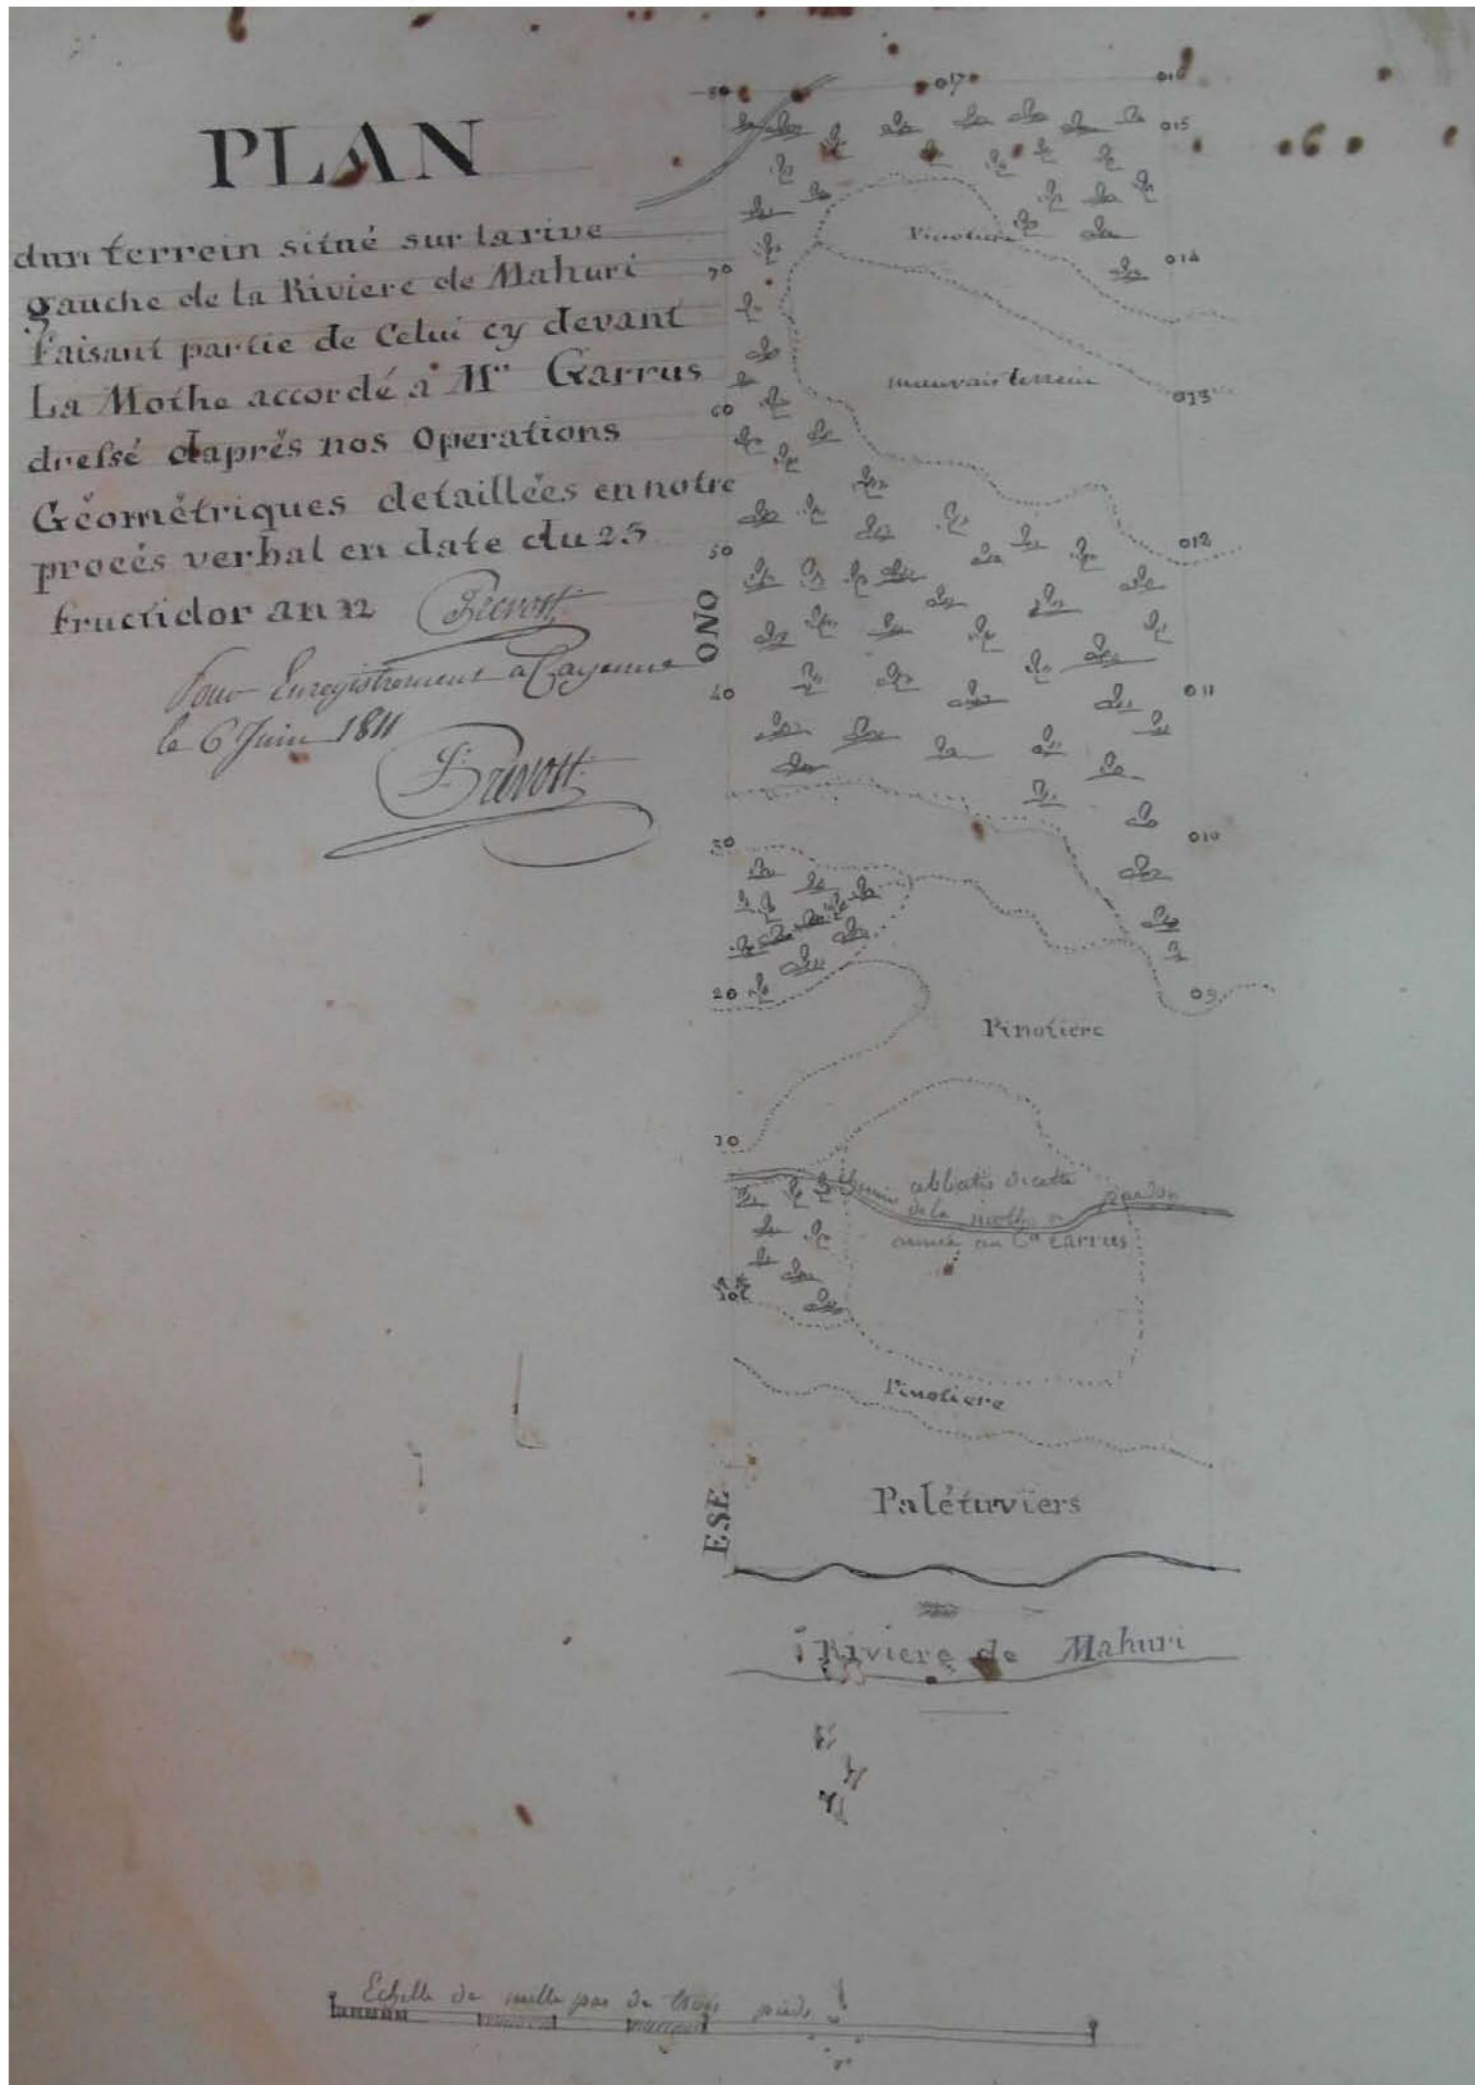 PLAN
dun terrein situé sur la rive
gauche de la Riviere de Mahuri
faisant partie de Celui cy devant
La Mothe accordé a Mr Garrus
dressé daprés nos Operations
Géométriques detaillées en notre
procés verbal en date du 25
fructidor an 12 Prevost
Pour Enregistrement a Cayenne
le 6 Juin 1811
Prevost
80
017
016
015
Pinotiere
014
70
mauvais terrein
013
60
012
50
ONO
40
011
30
010
20
09
Pinotiere
10
chemin abbatis
de la mothe
au Cn Garrus
Pinotiere
ESE
Palétuviers
Riviere de Mahuri
Echelle de mille pas de trois pieds